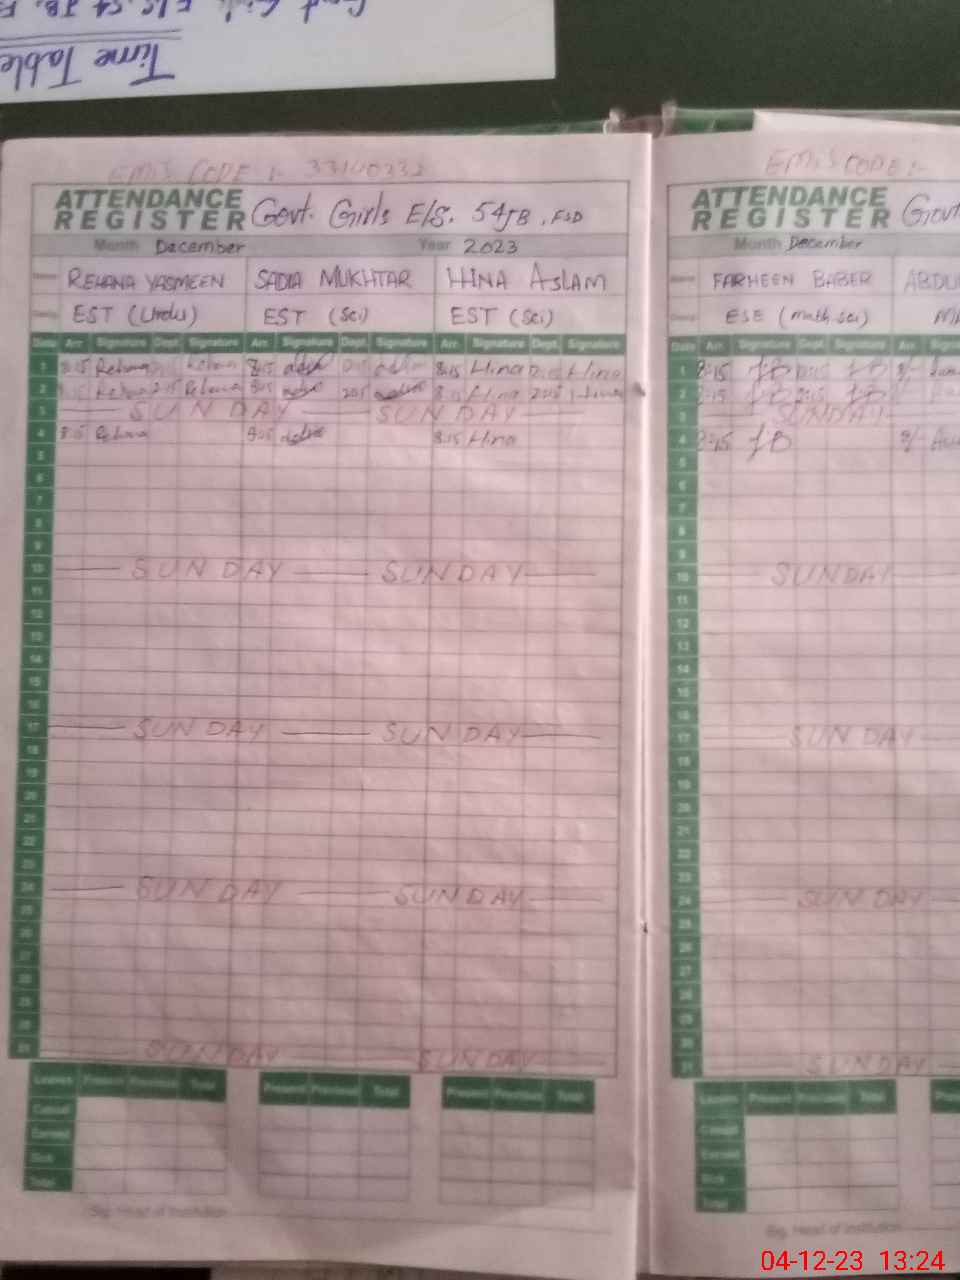 Time Table
EMIS CODE :- 33140232
ATTENDANCE REGISTER Govt. Girls E/S. 54JB, FSD
Month December Year 2023
Name REHANA YASMEEN SADIA MUKHTAR HINA ASLAM
Desig. EST (Urdu) EST (Sci) EST (Sci)
Date Arr. Signature Dept. Signature Arr. Signature Dept. Signature Arr. Signature Dept. Signature
1 8:15 Rehana Rehana 8:15 8:15 Hina Hina
2 Rehana 2:15 Rehana 8:15 2:15 Hina 2:15 Hina
3 SUNDAY SUNDAY
4 8:15 Rehana 8:15 8:15 Hina
5
6
7
8
9
10 SUNDAY SUNDAY
11
12
13
14
15
16
17 SUNDAY SUNDAY
18
19
20
21
22
23
24 SUNDAY SUNDAY
25
26
27
28
29
30
31 SUNDAY SUNDAY
Leaves Present Previous Total Present Previous Total Present Previous Total
Casual
Earned
Sick
Total
Sig. Head of Institution
EMIS CODE :-
ATTENDANCE REGISTER Govt
Month December
Name FARHEEN BABER ABDU
Desig. ESE (math, sci)
Date Arr. Signature Dept. Signature Arr. Signa
1 8:15
2 8:15
3 SUNDAY
4 8:15
5
6
7
8
9
10 SUNDAY
11
12
13
14
15
16
17 SUNDAY
18
19
20
21
22
23
24 SUNDAY
25
26
27
28
29
30
31 SUNDAY
Leaves Present Previous Total Pres
Casual
Earned
Sick
Total
Sig. Head of Institution
04-12-23 13:24